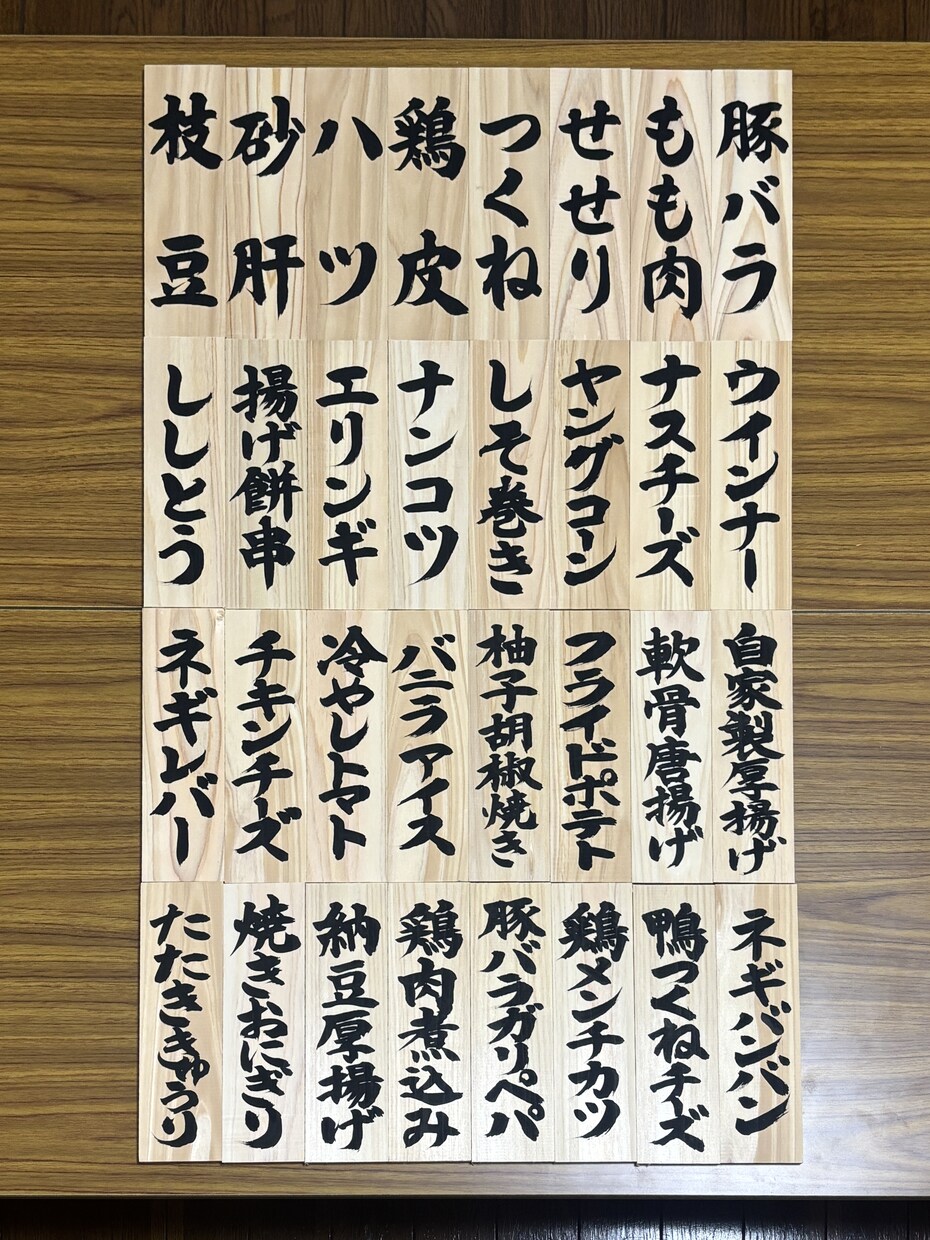 豚バラ
もも肉
せせり
つくね
鶏皮
ハツ
砂肝
枝豆
ウインナー
ナスチーズ
ヤングコーン
しそ巻き
ナンコツ
エリンギ
揚げ餅串
ししとう
自家製厚揚げ
軟骨唐揚げ
フライドポテト
柚子胡椒焼き
バニラアイス
冷やしトマト
チキンチーズ
ネギレバー
ネギバンバン
鴨つくねチーズ
鶏メンチカツ
豚バラガリペパ
鶏肉煮込み
納豆厚揚げ
焼きおにぎり
たたききゅうり